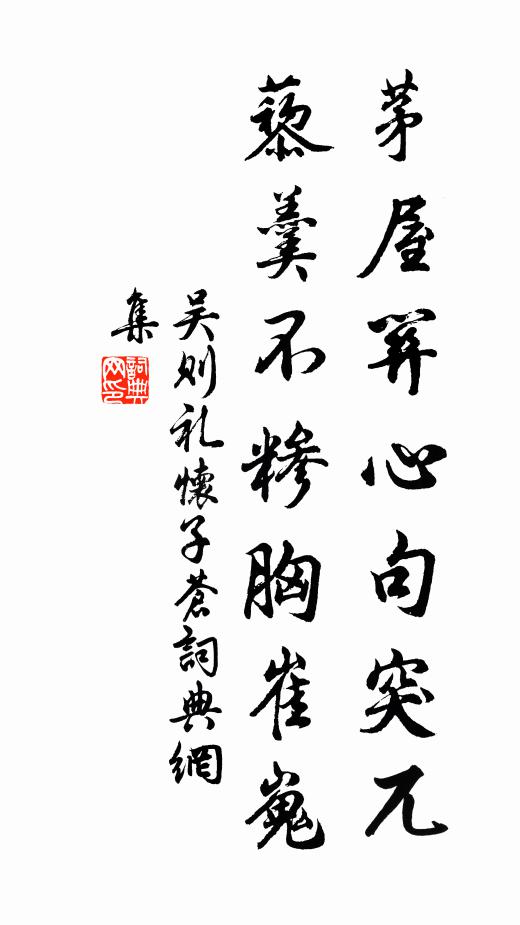 茅屋笄心句突兀
藜羹不糁胸崔嵬
吴则礼懷子蒼詞典網
集
詞典
网印